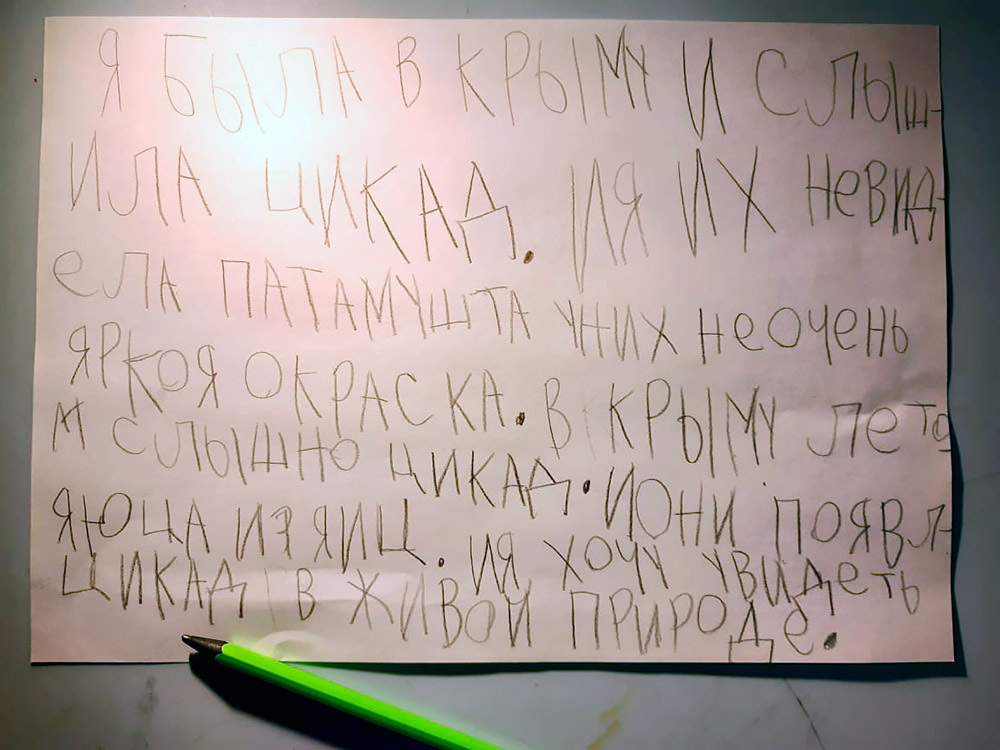 Я БЫЛА В КРЫМУ И СЛЫШ-
ИЛА ЦИКАД. ИЯ ИХ НеВИД-
еЛА ПАТАМУШТА УНИХ НеОЧеНЬ
ЯРКОЯ ОКРАСКА. В КРЫМУ Лето
М СЛЫШНО ЦИКАД. ИОНИ ПОЯВЛ-
ЯЮЦА ИЗ ЯИЦ. ИЯ ХОЧУ УВИДеТЬ
ЦИКАД В ЖИВОЙ ПРИРОДе.